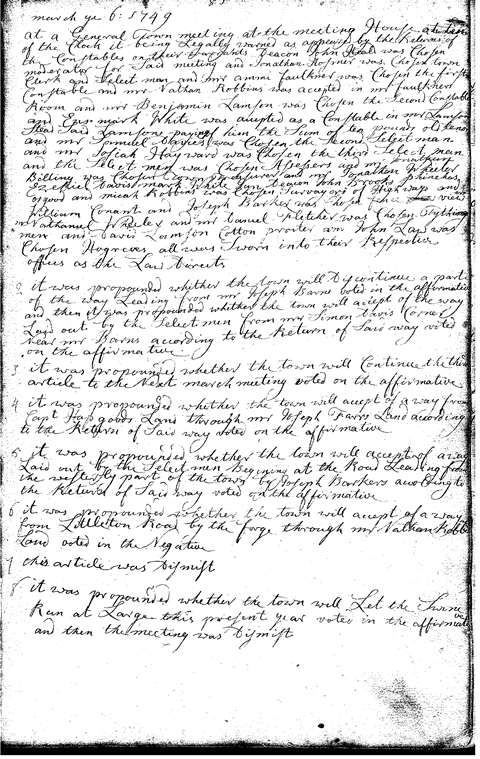 march ye 6: 1749
at a General Town meeting at the meeting House at
of the Clock it being Legally warned as appeared by the Returns of
the Constables on their warrants Deacon John Heald was Chosen
moderator for Said meeting and Jonathan Hosmer was Chosen town
Clerk and Select man and mr ammi faulkner was Chosen the first
Constable and mr Nathan Robbins was accepted in mr faulkners
Room and mr Benjamin Lamson was Chosen the Second Constable
and Ens mark White was accepted as a Constable in mr Lamsons
Stead Said Lamson paying him the Sum of ten pounds old tenor
and mr Samuel Davies was Chosen the Second Select man
and mr Josiah Hayward was Chosen the third Select man
and the Select men was Chosen Assessors and mr Jonathan
Billing was Chosen town Treasurer and mr Jonathan Wheeler
Ezekiel Davis mark White Jun Deacon John Brooks Phinehas
osgood and micah Robbins was Chosen Survayors of High ways and
William Conant and Joseph Barker was Chosen fence viewers
mr Nathanael Wheeler and mr Samuel Fletcher was Chosen Tything
men and David Lamson Cotton Procter and John Law was
Chosen Hogreves all wers Sworn into their Respective
offices as the Law Directs
2 it was propounded whether the town will Discontinue a part
of the way Leading from mr Joseph Barns voted in the affirmative
and then it was propounded whither the town will accept of the way
Laid out by the Select men from mr Simon Davis Corner
Near mr Barns according to the Return of Said way voted
on the affirmative
3 it was propounded whether the town will Continue the third
article to the Next march meeting voted on the affirmative
4 it was propounded whether the town will acept of a way from
Capt Hapgoods Land through mr Joseph Farrs Land acording
to the Return of Said way voted on the affirmative
5 it was propounded whether the town will accept of a way
Laid out by the Select men Begining at the Road Leading from
the westerly part of the town by Joseph Barkers acording to
the Return of Said way voted on the affirmative
6 it was propounded whether the town will accept of a way
from Littleton Road by the forge through mr Nathan Robbins
Land voted in the Negative
7 this article was Dismist
8 it was propounded whether the town will Let the Swine
Run at Large this present year voted in the affirmative
and then the meeting was Dismist